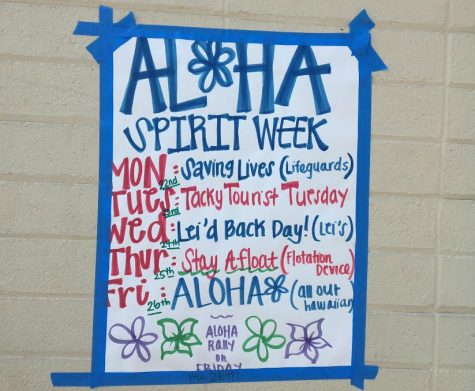 ALOHA
SPIRIT WEEK
MON 22nd: Saving Lives (Lifeguards)
TUES 23rd: Tacky Tourist Tuesday
Wed 24th: Lei'd Back Day! (Lei's)
Thur 25th: Stay Afloat (Flotation Device)
Fri 26th: ALOHA (all out hawaiian)
ALOHA
Rally
on
FRIDAY